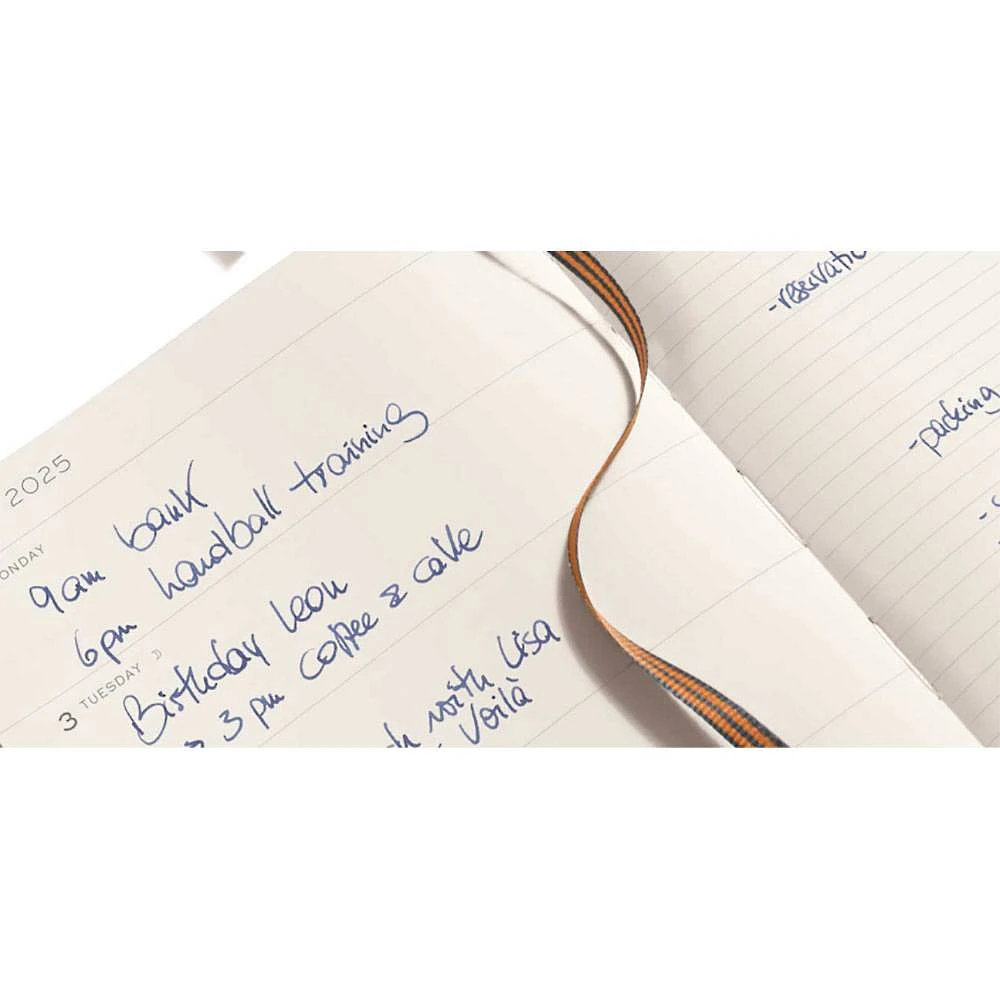 2025
ONDAY
9am bank
6pm handball training
3 TUESDAY
Birthday Leon
3 pm coffee & cake
with Lisa
Voilà
-reservatic
-packing